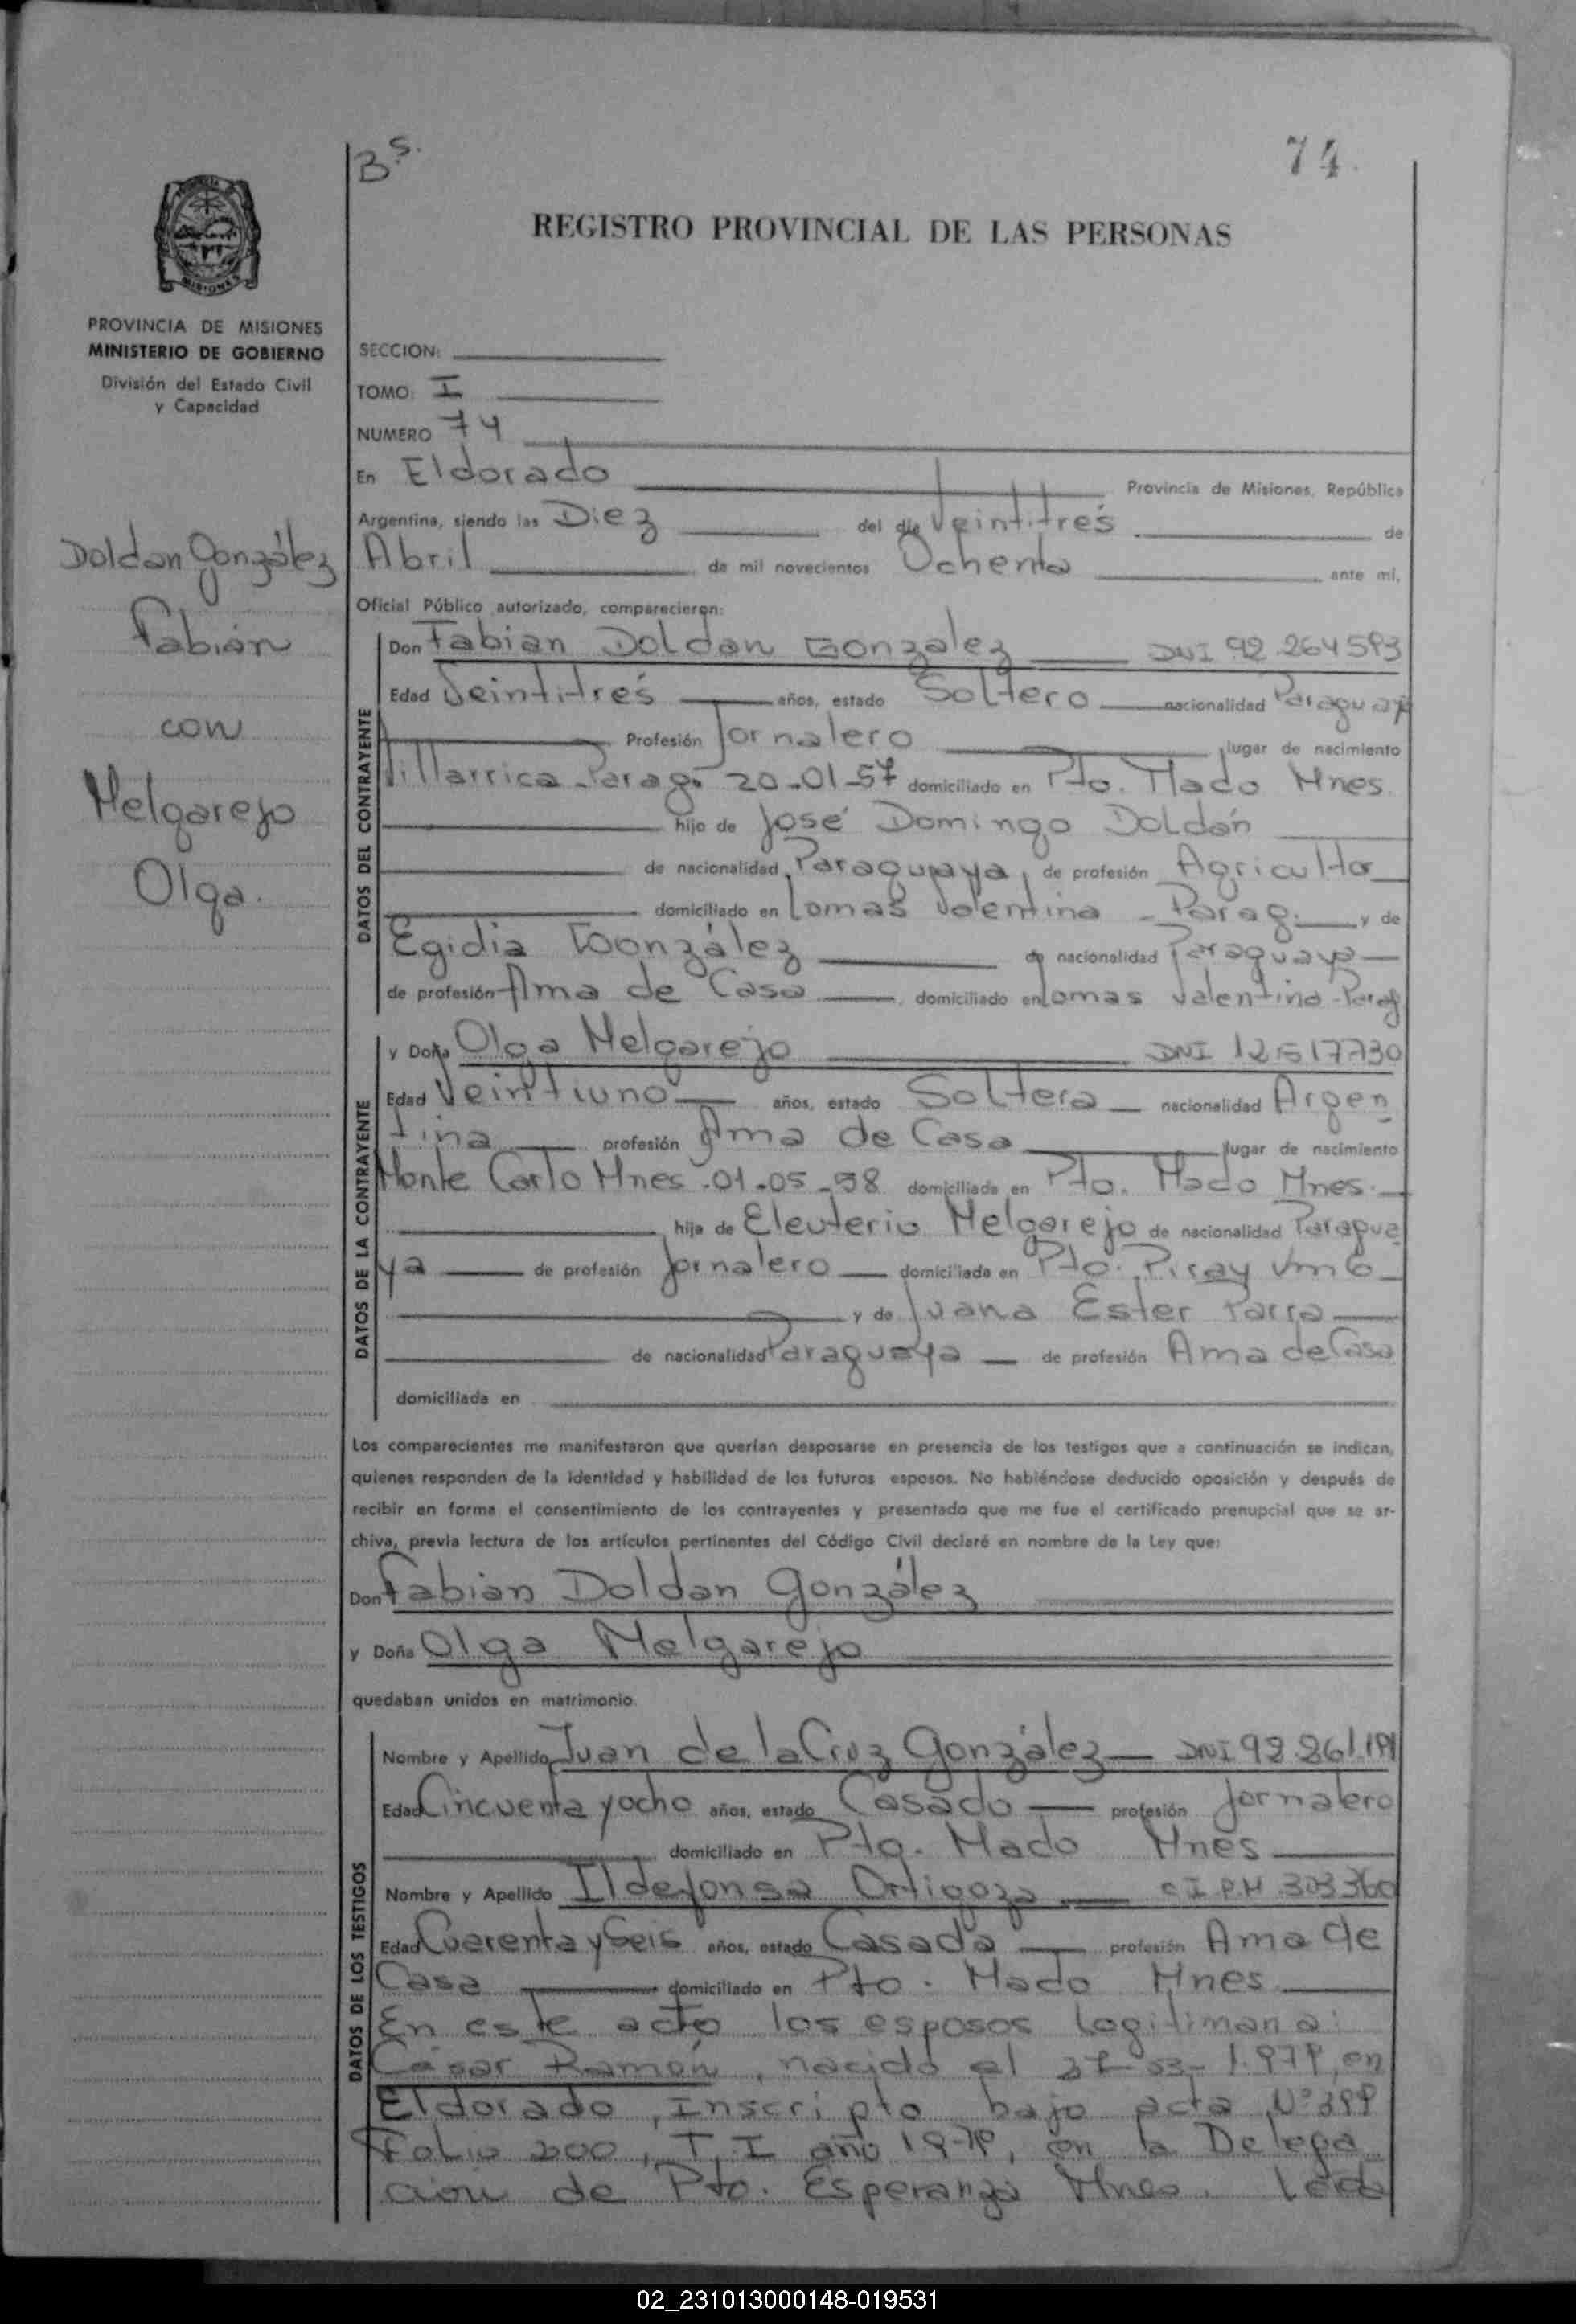 Bs.
74.
REGISTRO PROVINCIAL DE LAS PERSONAS
MISIONES
PROVINCIA DE MISIONES
MINISTERIO DE GOBIERNO
División del Estado Civil
y Capacidad
Doldan González
Fabián
con
Melgarejo
Olga.
SECCION:
TOMO: I
NUMERO 74
En Eldorado Provincia de Misiones, República
Argentina, siendo las Diez del día Veintitrés de
Abril de mil novecientos Ochenta ante mi,
Oficial Público autorizado, comparecieron:
DATOS DEL CONTRAYENTE
Don Fabian Doldan Gonzalez DNI 92.264593
Edad Veintitrés años, estado Soltero nacionalidad Paraguay
Profesión Jornalero lugar de nacimiento
Villarrica-Parag. 20-01-57 domiciliado en Pto. Mado Mnes
hijo de José Domingo Doldán
de nacionalidad Paraguaya, de profesión Agricultor
domiciliado en Lomas Valentina - Parag. y de
Egidia González de nacionalidad Paraguaya
de profesión Ama de Casa domiciliado en Lomas Valentina-Parag
DATOS DE LA CONTRAYENTE
y Doña Olga Melgarejo DNI 12517730
Edad Veintiuno años, estado Soltera nacionalidad Argen
tina profesión Ama de Casa lugar de nacimiento
Monte Carlo Mnes.01-05-58 domiciliada en Pto. Mado Mnes.
hija de Eleuterio Melgarejo de nacionalidad Paragua
ya de profesión Jornalero domiciliada en Pto. Piray
y de Juana Ester Parra
de nacionalidad Paraguaya de profesión Ama de Casa
domiciliada en
Los comparecientes me manifestaron que querían desposarse en presencia de los testigos que a continuación se indican,
quienes responden de la identidad y habilidad de los futuros esposos. No habiéndose deducido oposición y después de
recibir en forma el consentimiento de los contrayentes y presentado que me fue el certificado prenupcial que se ar-
chiva, previa lectura de los artículos pertinentes del Código Civil declaré en nombre de la Ley que:
Don Fabian Doldan González
y Doña Olga Melgarejo
quedaban unidos en matrimonio.
DATOS DE LOS TESTIGOS
Nombre y Apellido Juan de la Cruz González DNI
Edad Cincuenta y ocho años, estado Casado profesión Jornalero
domiciliado en Pto. Mado Mnes
Nombre y Apellido Ildefonsa Ortigoza C.I.P.M 303360
Edad Cuarenta y Seis años, estado Casada profesión Ama de
Casa domiciliado en Pto. Mado Mnes.
En este acto los esposos legitiman a:
César Ramón, nacido el en
Eldorado, Inscripto bajo acta Nº
Folio 200, T. I año en la Delega
ción de Pto. Esperanza Mnes. Leda
02_231013000148-019531